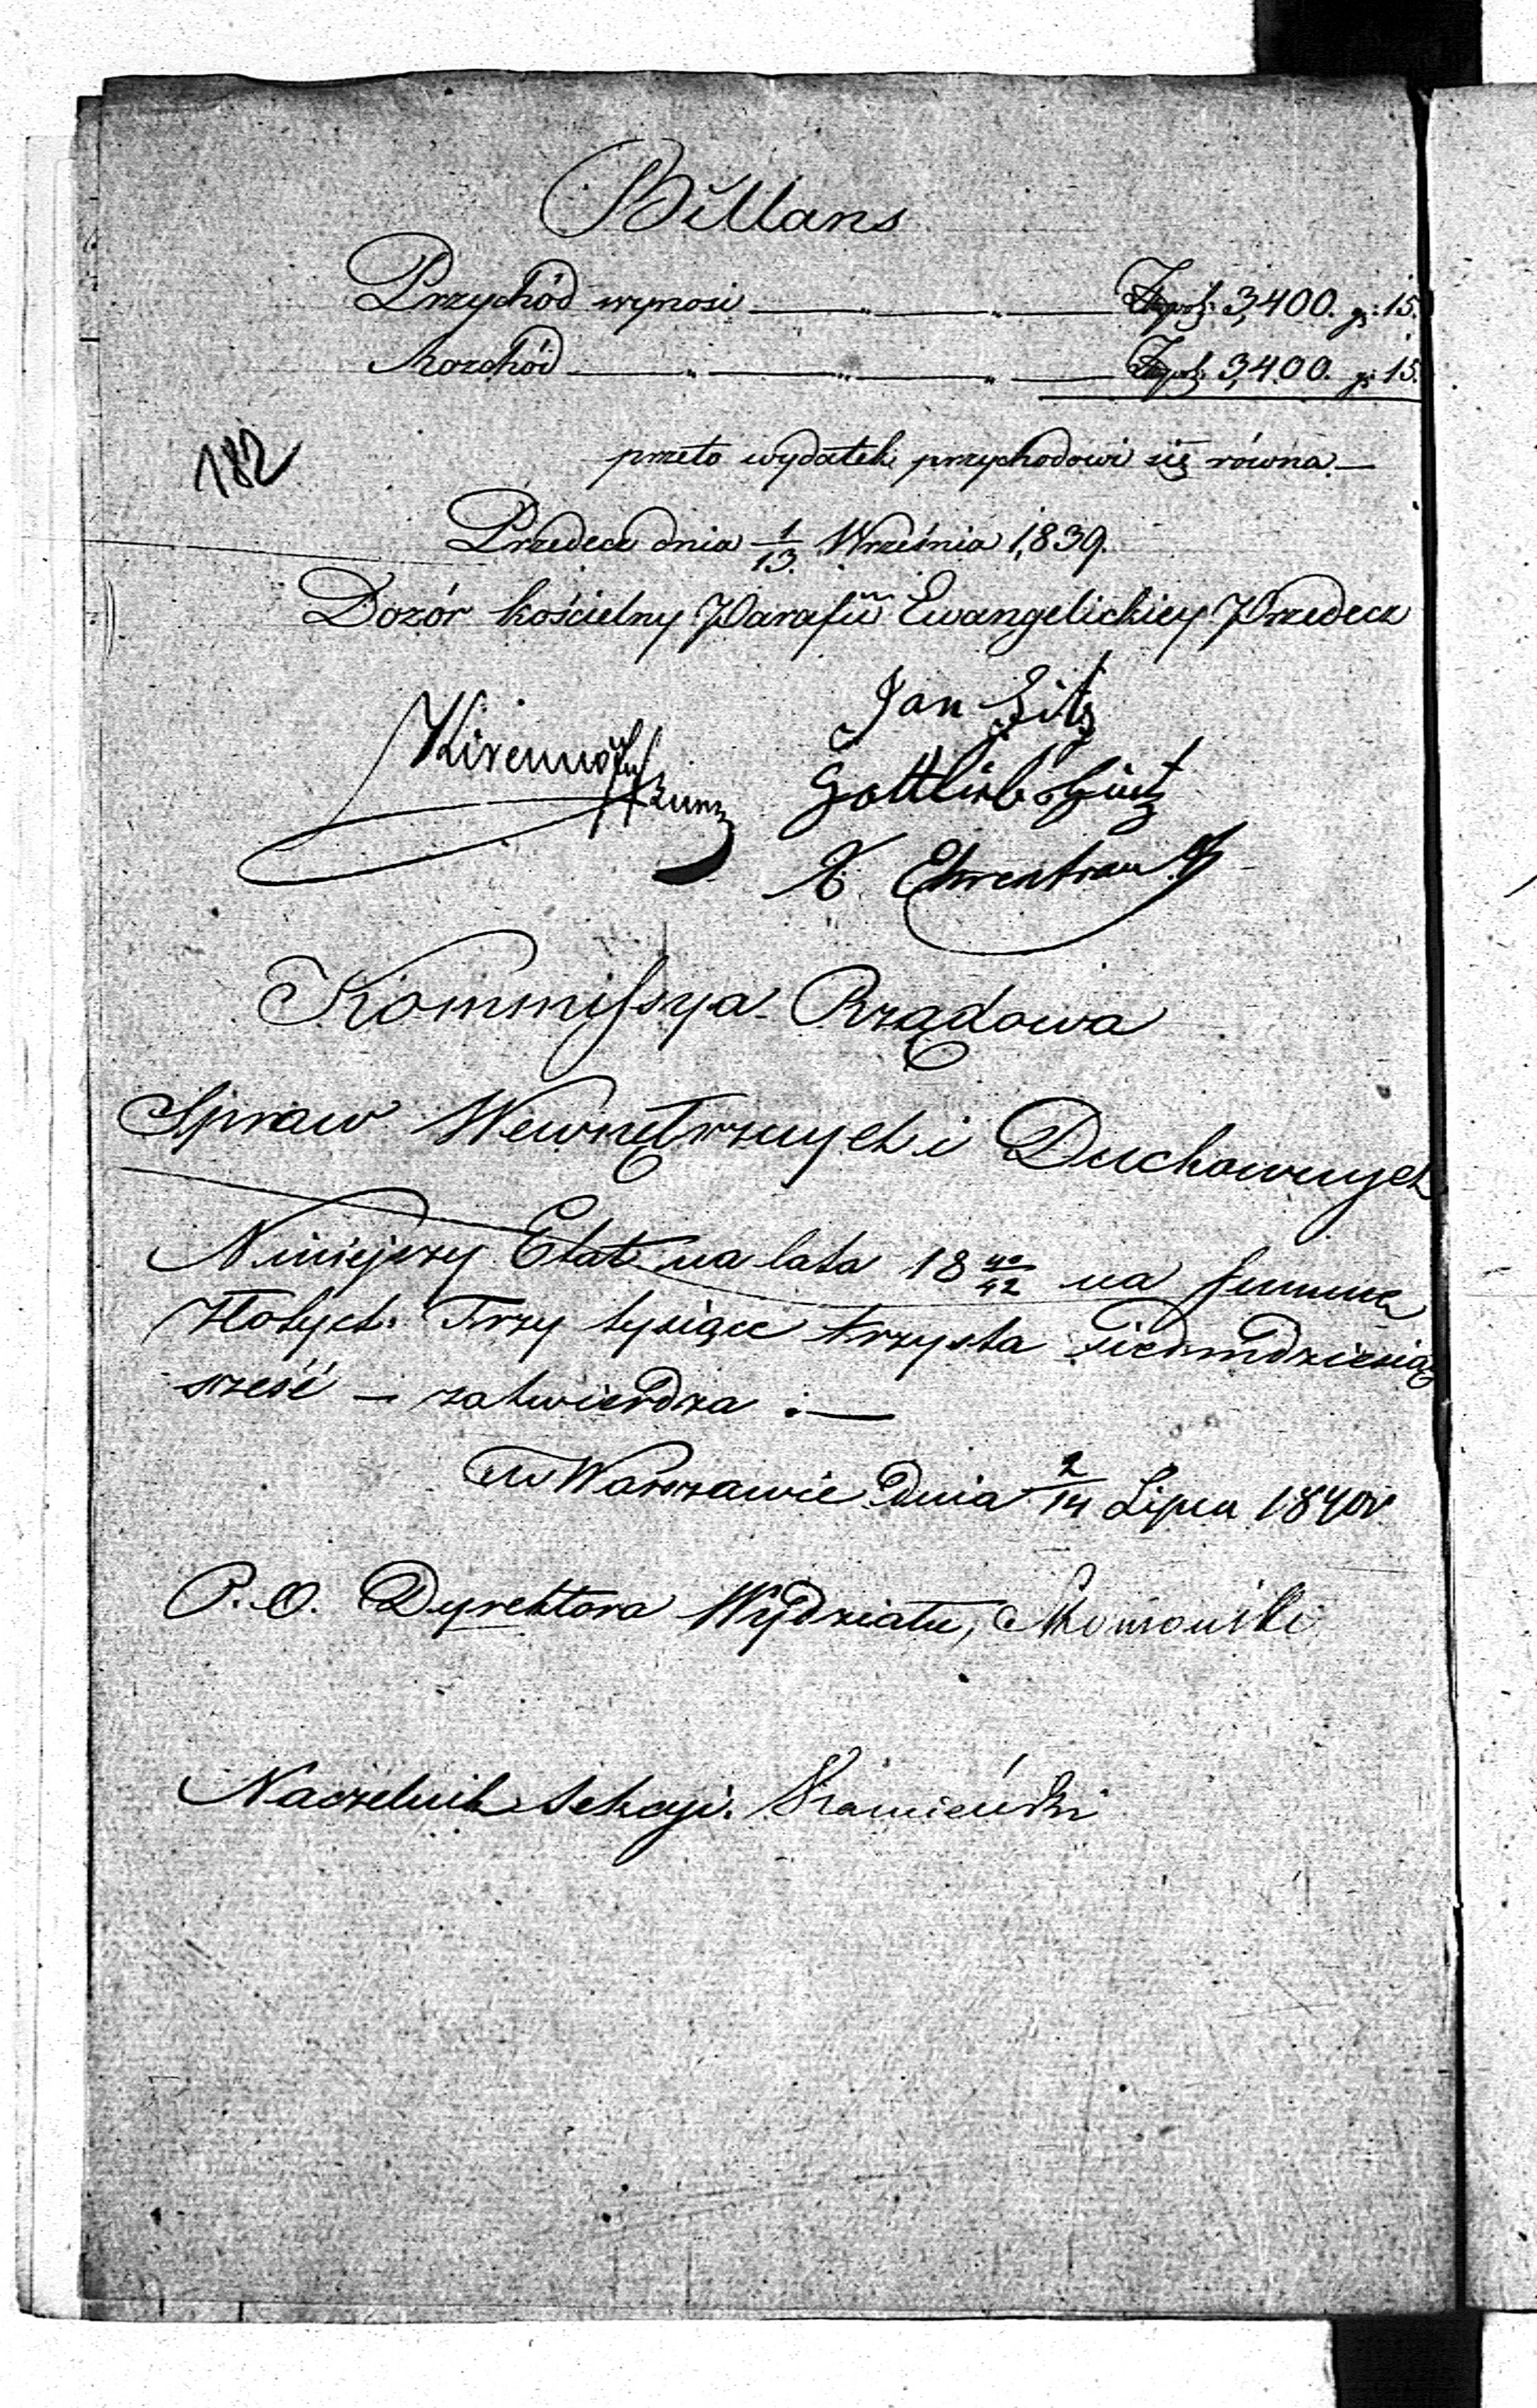 Billans
Przychód wynosi — „ — „ — Złpol: 3,400. gr: 15.
Rozchód — „ — „ — „ — Złpol: 3,400. gr: 15.
182
przeto wydatek przychodowi się równa —
Przedecz dnia 1/13. Września 1839.
Dozór kościelny Parafii Ewangelickiey Przedecz
Jan
Gottlieb
Kommissya Rządowa
Spraw Wewnętrznych i Duchownych
Niniejszy Etat na lata 18 40/42 na summę
Złotych: Trzy tysiące trzysta siedmdziesiąt
sześć — zatwierdza :—
w Warszawie dnia 2/14 Lipca 1840 r
P. O. Dyrektora Wydziału,
Naczelnik Sekcyi. Kamieński